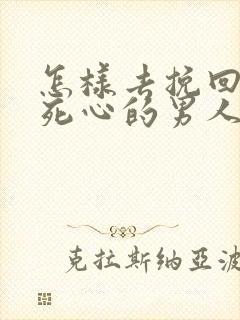 怎樣去挽回
死心的男人
克拉斯纳亞波